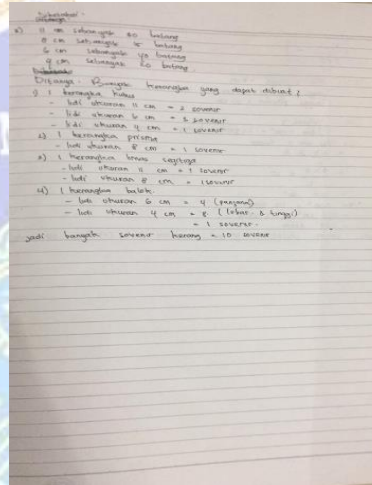 11 cm sebanyak 80 batang
8 cm sebanyak 15 batang
6 cm sebanyak 40 batang
4 cm sebanyak 20 batang
Ditanya : Banyak kerangka yang dapat dibuat ?
1) 1 kerangka kubus
- lidi ukuran 11 cm = 2 sovenir
- lidi ukuran 6 cm = 3 sovenir
- lidi ukuran 4 cm = 1 sovenir
2) 1 kerangka prisma
- lidi ukuran 8 cm = 1 sovenir
3) 1 kerangka segitiga
- lidi ukuran 11 cm = 1 sovenir
- lidi ukuran 8 cm = 1 sovenir
4) 1 kerangka balok
- lidi ukuran 6 cm = 4 (panjang)
- lidi ukuran 4 cm = 8 (lebar & tinggi)
= 1 sovenir.
jadi banyak sovenir = 10 sovenir